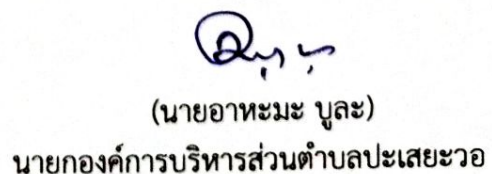 (นายอาหะมะ บูละ)
นายกองค์การบริหารส่วนตำบลปะเสยะวอ